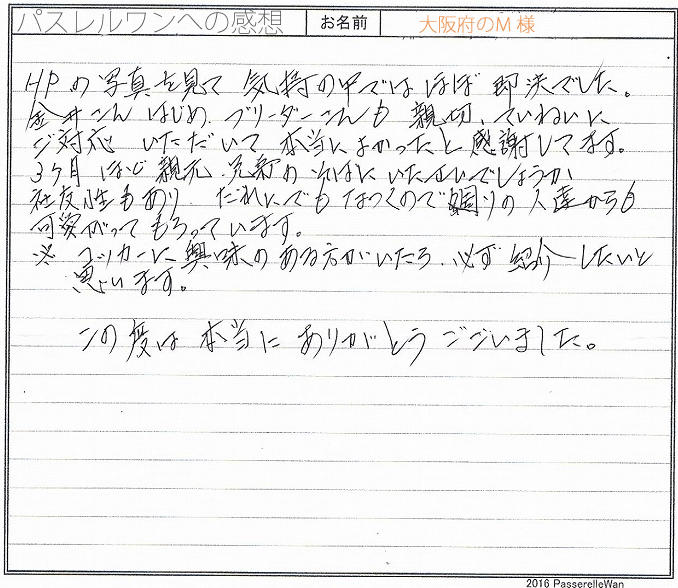 パスレルワンへの感想 お名前 大阪府のM 様
HPの写真を見て 気持の中では ほぼ 即決でした。
金井さん はじめ、ブリーダーさんも 親切、ていねいに
ご対応 いただいて 本当によかったと 感謝してます。
3ヶ月 ほど 親元、兄弟の そばに いたせいでしょうか
社交性もあり だれにでも なつくので 周りの人達からも
可愛がって もらっています。
※ コッカーに 興味の ある方がいたら、必ず 紹介 したいと
思います。
この度は 本当に ありがとう ございました。
2016 PasserelleWan